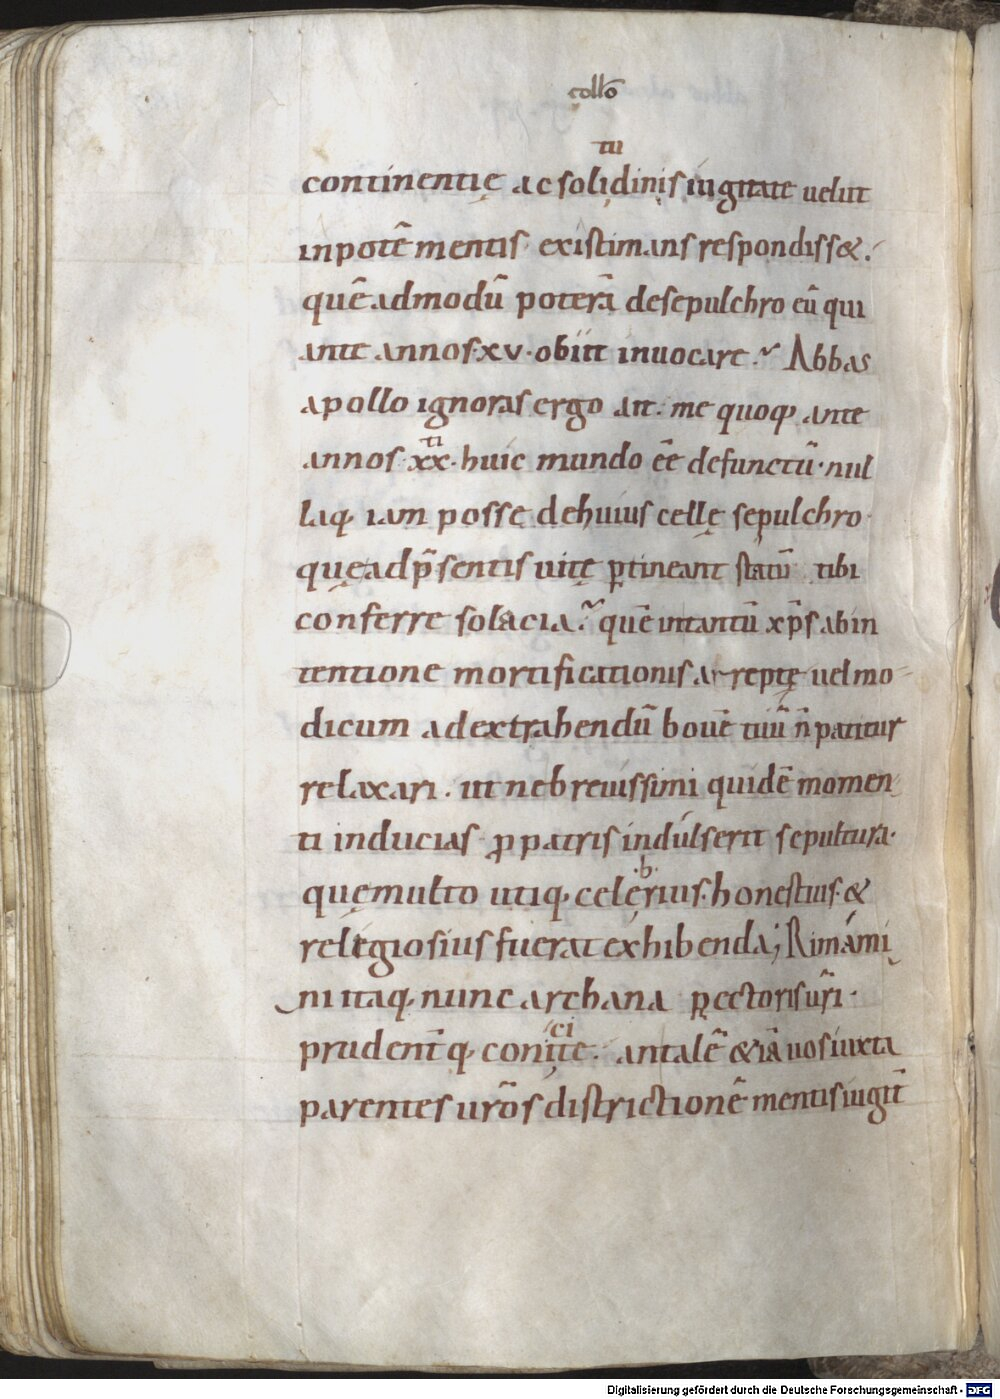 collõ
tu
continentię ac solidinis iugitate uelut
inpotē mentis existimans respondiss&.
quē admodū poterā desepulchro eū qui
ante annos·xv·obiit inuocare? Abbas
apollo ignoras ergo ait. me quoq; ante
ti
annos·xx·huic mundo eē defunctū·nul
laq; iam posse dehuius cellę sepulchro·
quę adp̄sentis uitę ꝑtineant statū tibi
conferre solacia? quē intantū xp̄s abin
tentione mortificationis arreptę uel mo
dicum adextrahendū bouē tuū n̄ patitur
relaxari. ut nebreuissimi quidē momen
ti inducias ꝓpatris indulserit sepultura·
b
quę multo utiq; celerius·honestius·&
religiosius fuerat exhibenda; Rimámi
ni itaq; nunc archana pectoris ur̄i·
ci
prudent̄q; coniite· antalē &iā uos iuxta
parentes ur̄os districtionē mentis iugit̄
Digitalisierung gefördert durch die Deutsche Forschungsgemeinschaft - DFG